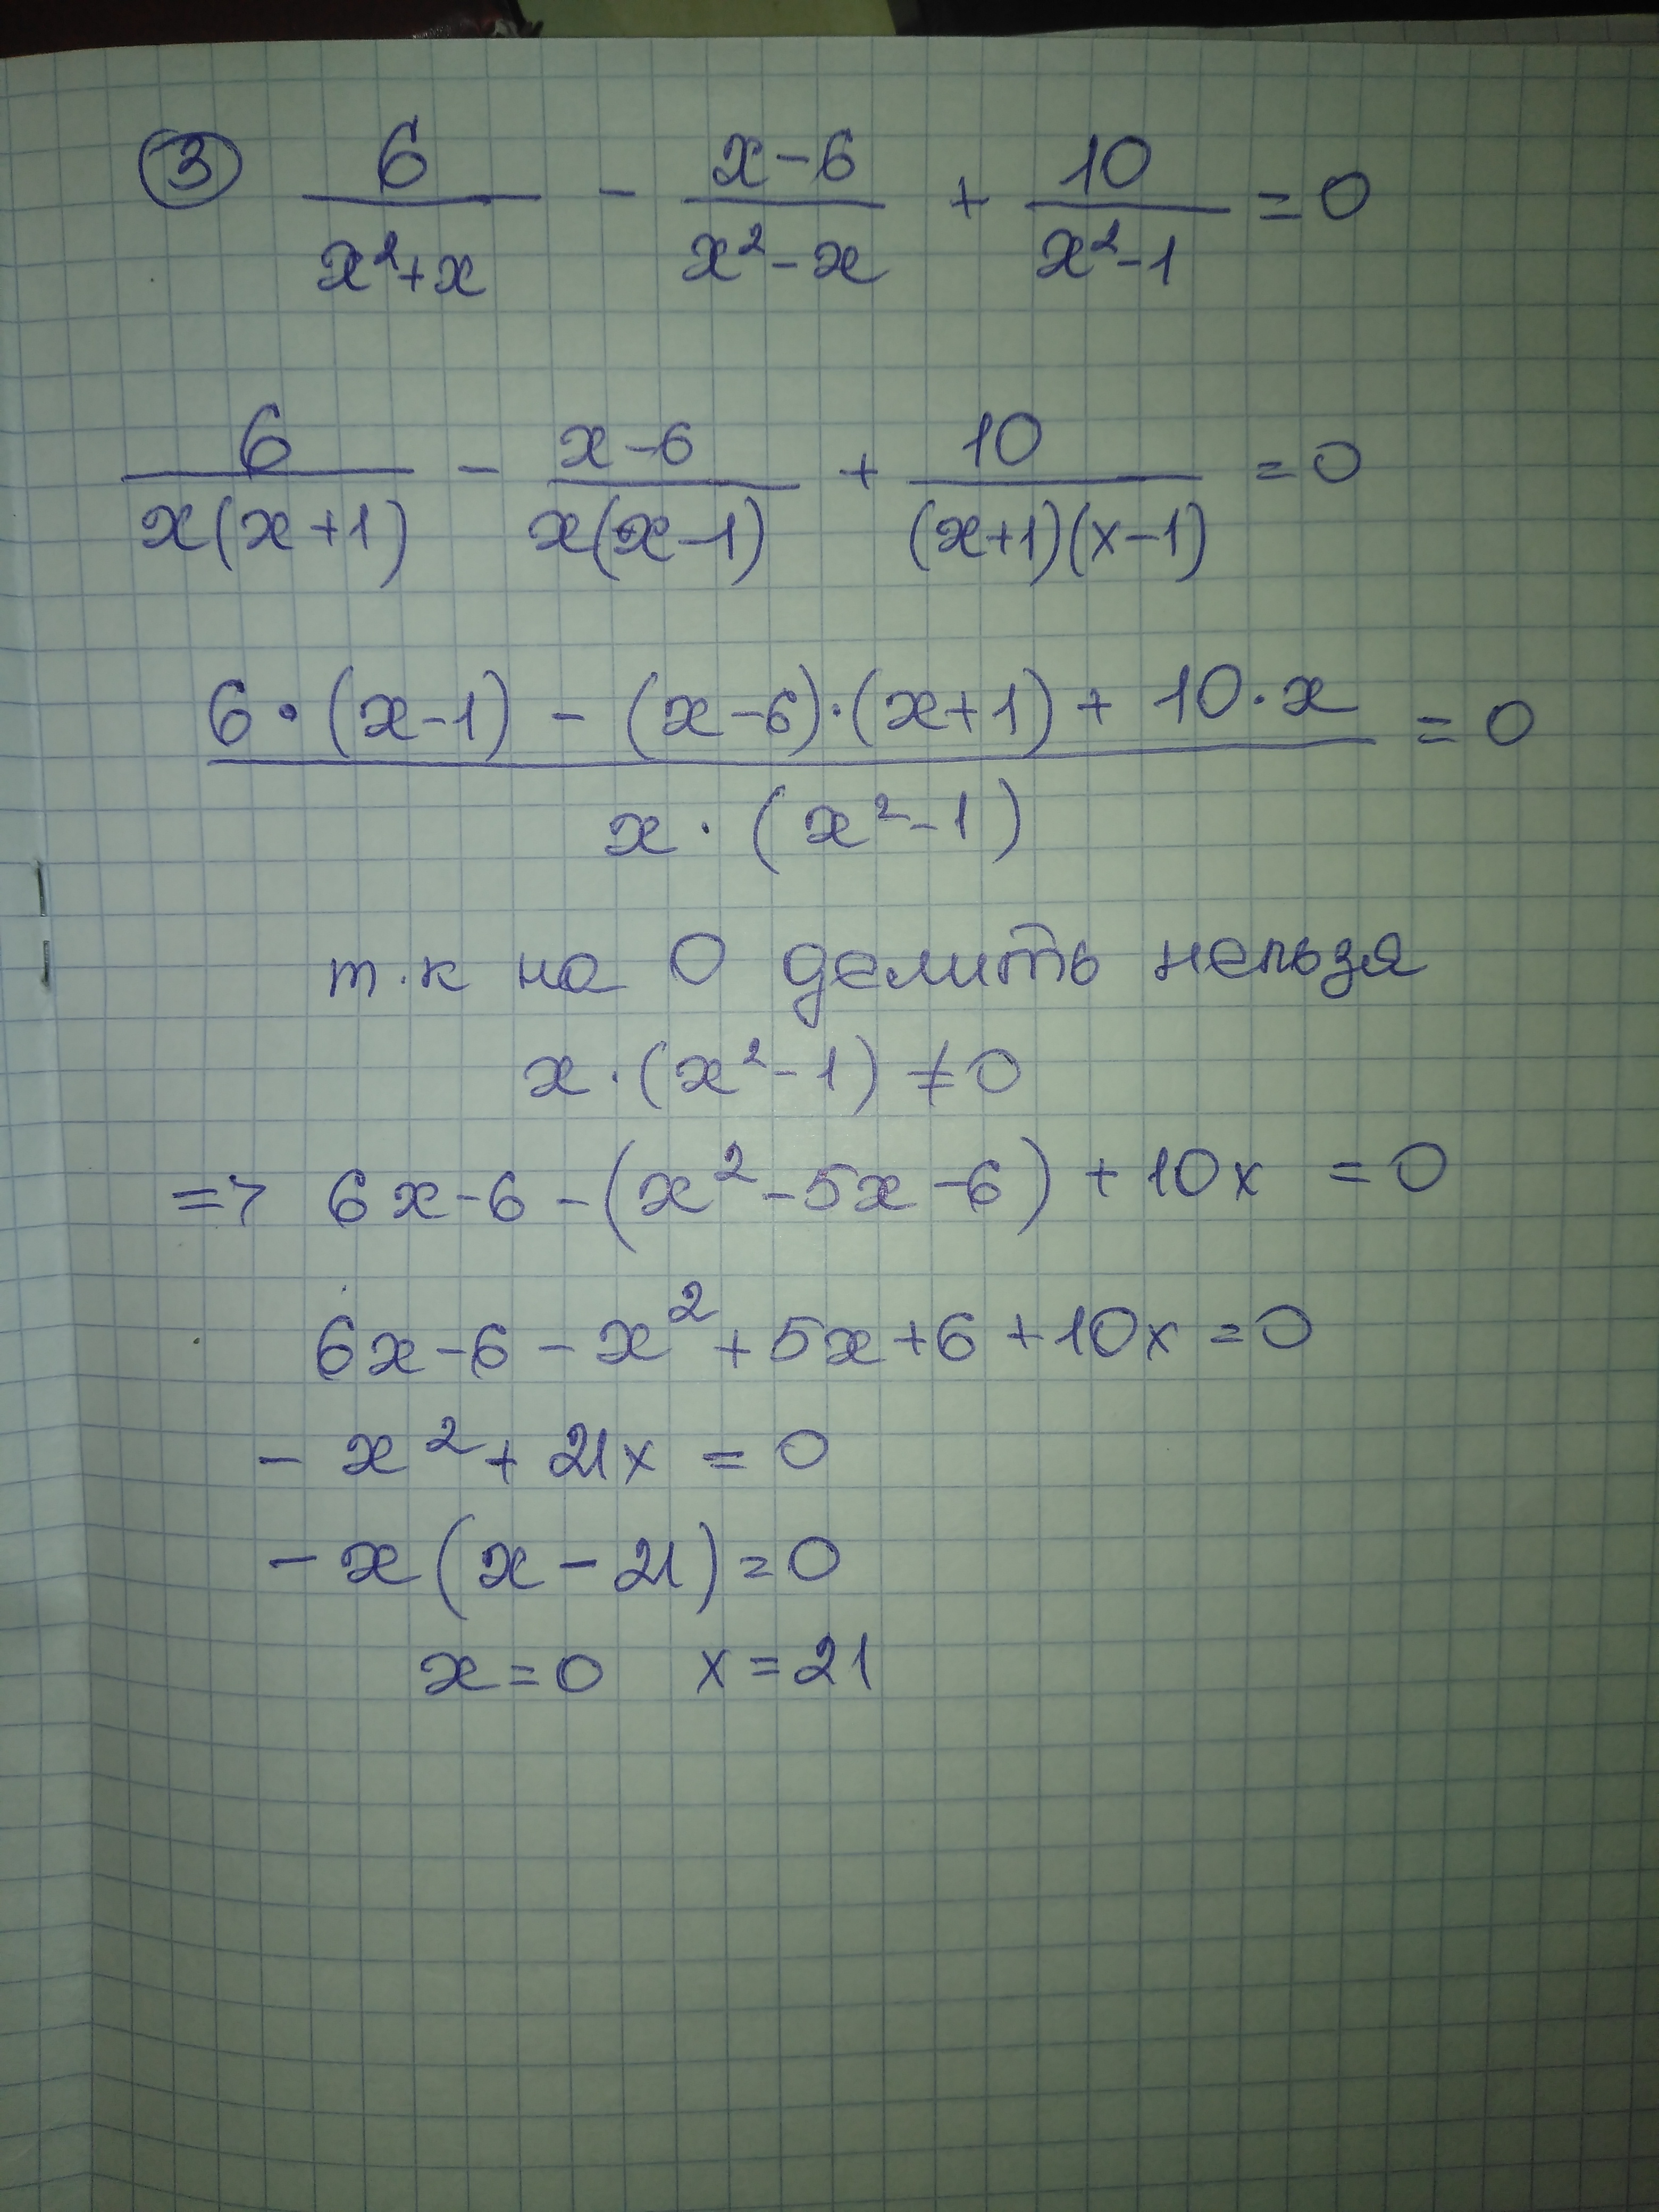 ③ 6/(x²+x) - (x-6)/(x²-x) + 10/(x²-1) = 0
6/(x(x+1)) - (x-6)/(x(x-1)) + 10/((x+1)(x-1)) = 0
(6·(x-1) - (x-6)·(x+1) + 10·x)/(x·(x²-1)) = 0
т.к на 0 делить нельзя
x·(x²-1) ≠ 0
=> 6x-6-(x²-5x-6)+10x = 0
6x-6-x²+5x+6+10x=0
-x²+21x = 0
-x(x-21)=0
x=0 x=21